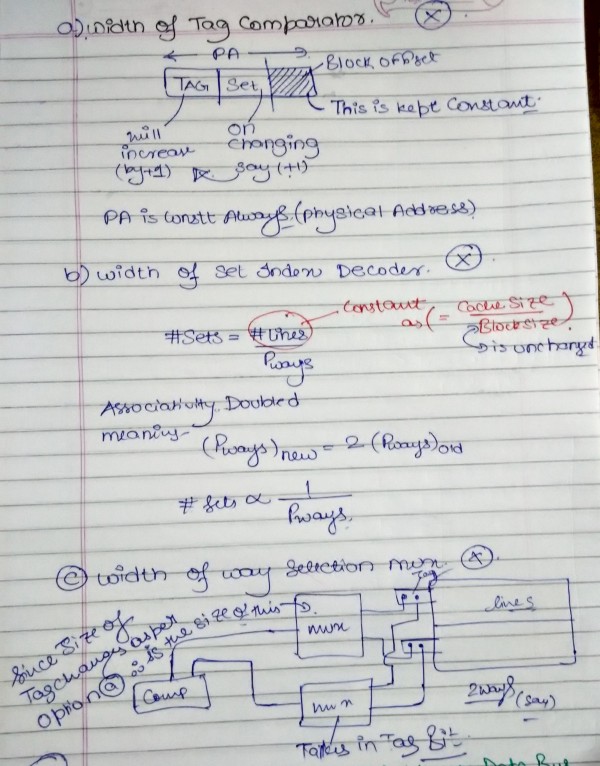 a) width of Tag Comparator. X
PA
TAG Set Block offset
This is kept Constant.
will increase (by +1)
on changing say (+1)
PA is Constt Always (Physical Address)
b) width of Set Index Decoder. X
#Sets = #Lines / Pways
Constant as (= Cache Size / Block size)
is unchanged
Associativity Doubled
meaning- (Pways)new = 2 (Pways)old
# Sets ∝ 1 / Pways.
c) width of way Selection mux. X
Tag
Since Size of
Tag changes as per
option a ∴ is the size of this
mux
lines
Comp
mux
2ways (say)
Takes in Tag Bit
Data Bus